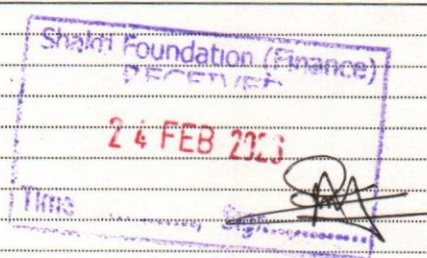 Shalom Foundation (Finance)
RECEIVED
24 FEB
Time ............, Sign................